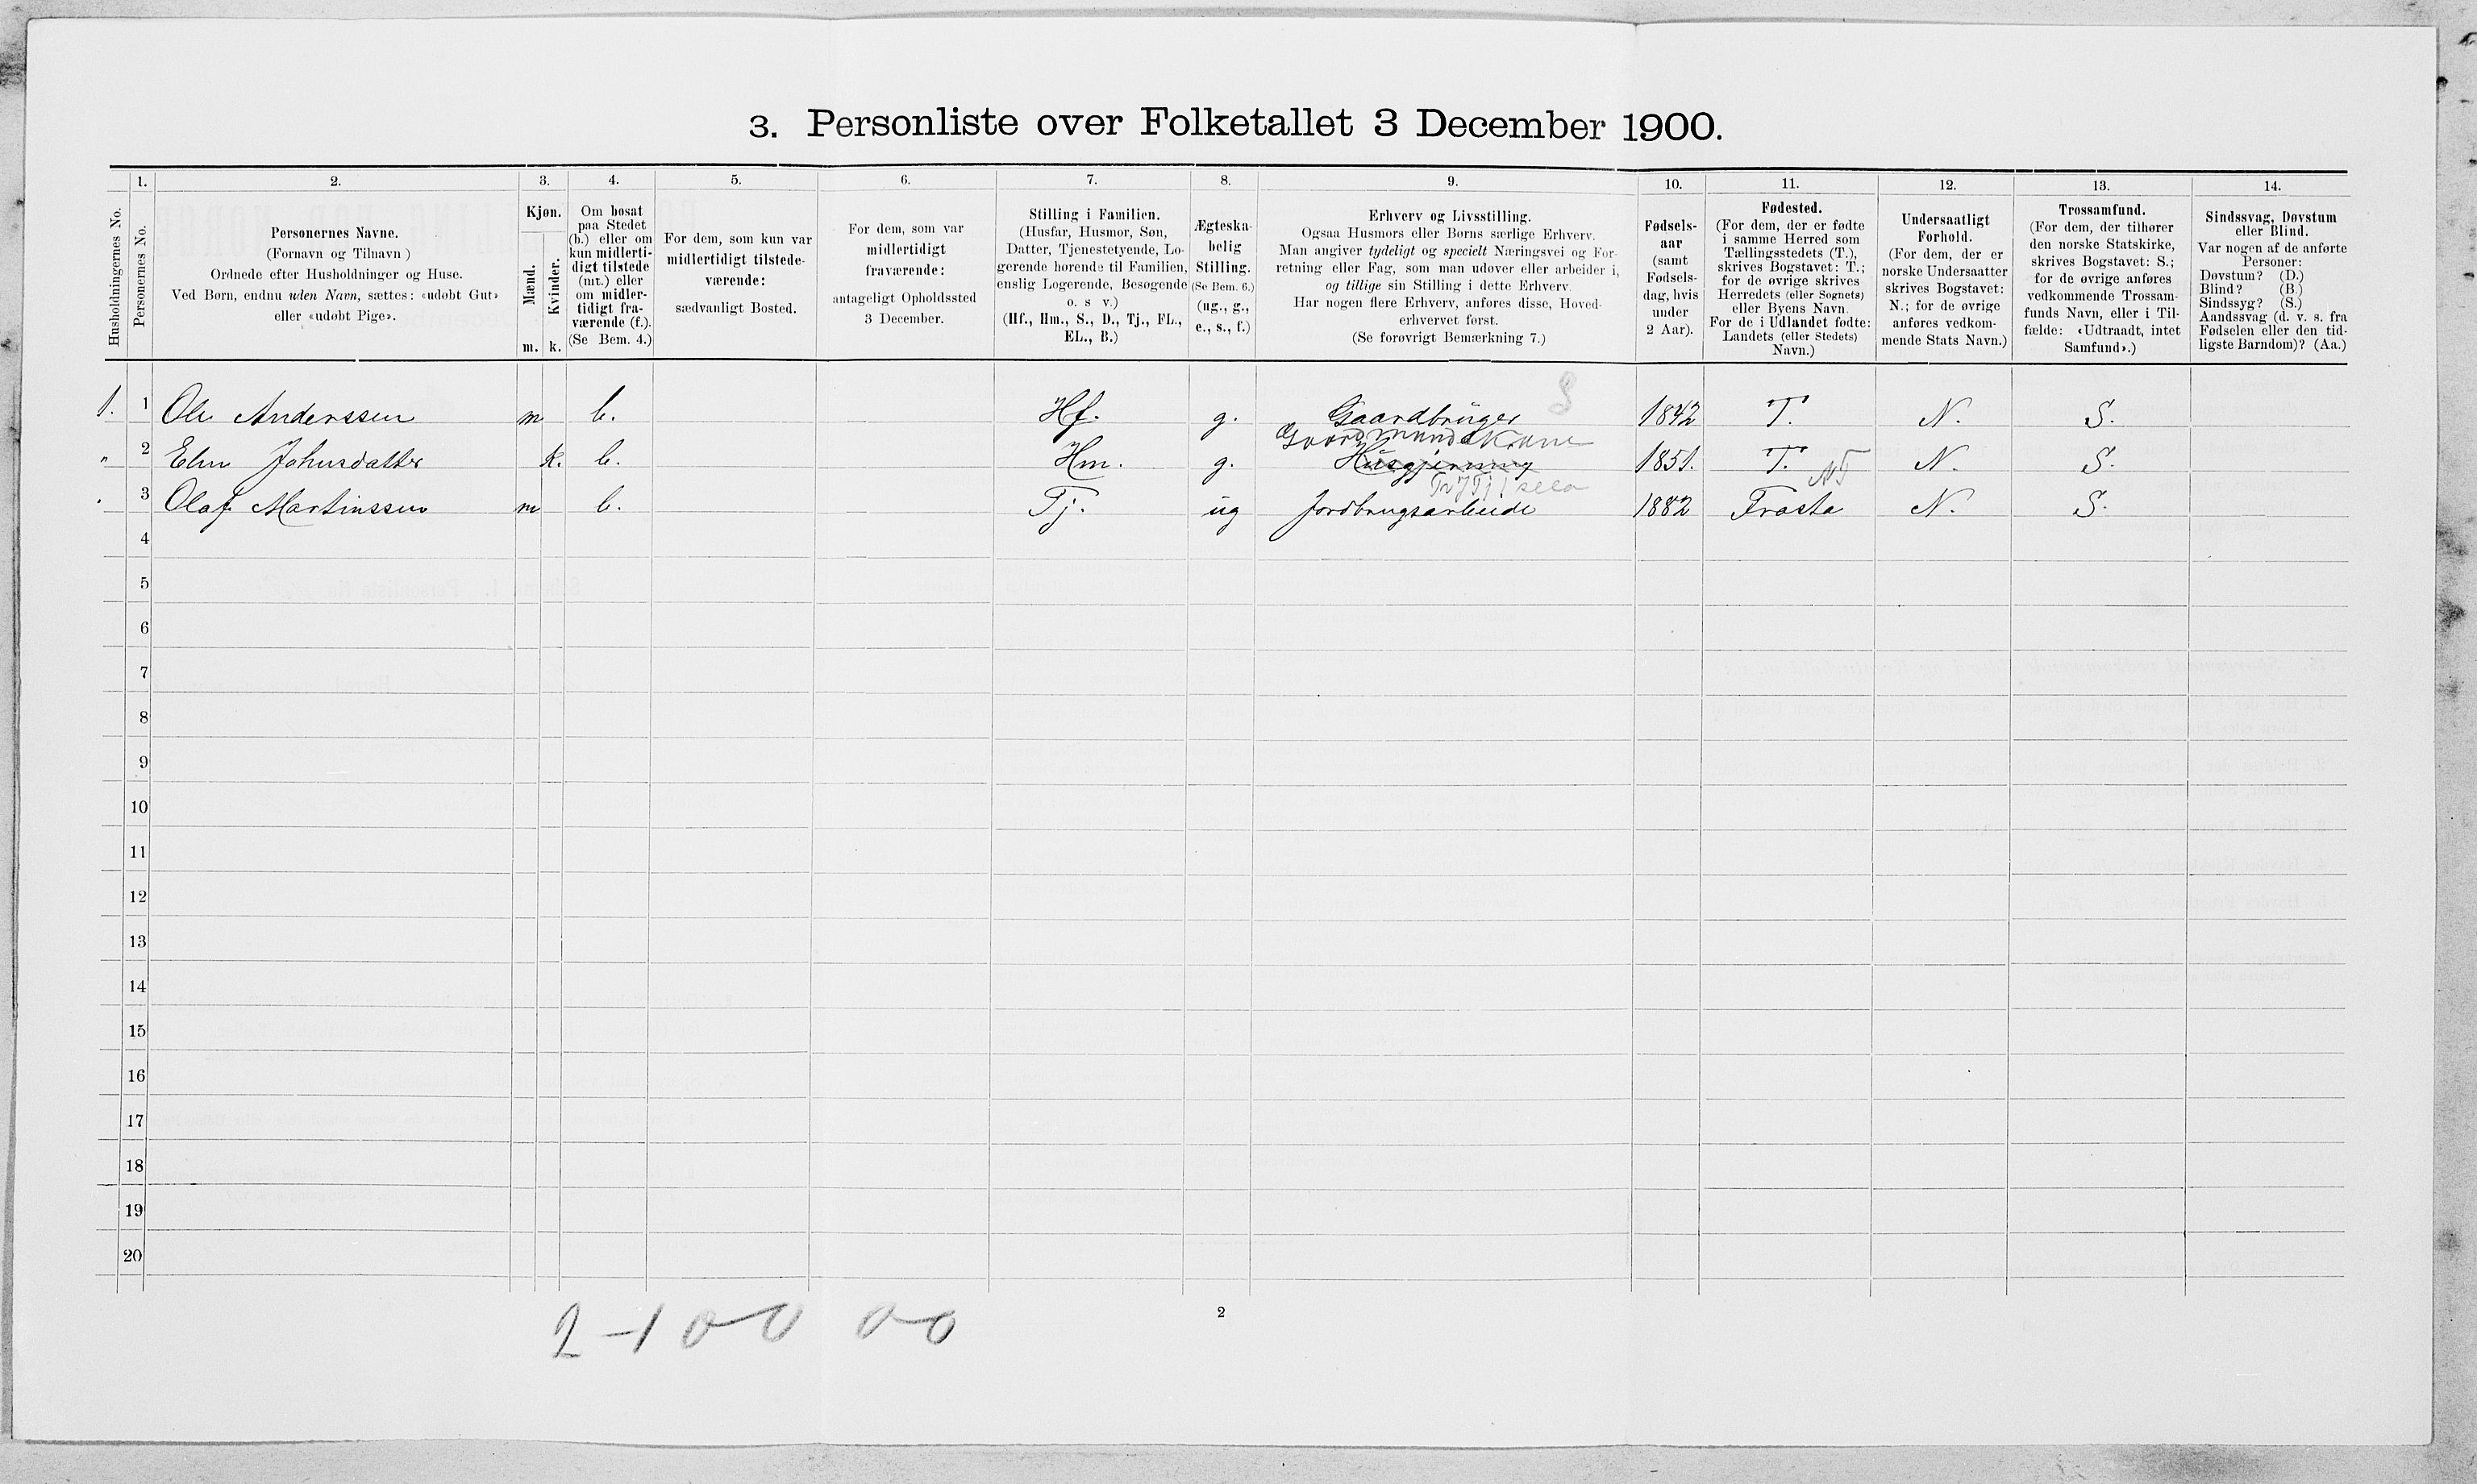 3. Personliste over Folketallet 3 December 1900.
1. 2. 3. 4. 5. 6. 7. 8. 9. 10. 11. 12. 13. 14.
Husholdningernes No.
Personernes No.
Personernes Navne.
(Fornavn og Tilnavn)
Ordnede efter Husholdninger og Huse.
Ved Børn, endnu uden Navn, sættes: «udøbt Gut»
eller «udøbt Pige».
Kjøn.
Mænd.
Kvinder.
m. k.
Om bosat
paa Stedet
(b.) eller om
kun midlerti-
digt tilstede
(mt.) eller
om midler-
tidigt fra-
værende (f.).
(Se Bem. 4.)
For dem, som kun var
midlertidigt tilstede-
værende:
sædvanligt Bosted.
For dem, som var
midlertidigt
fraværende:
antageligt Opholdssted
3 December.
Stilling i Familien.
(Husfar, Husmor, Søn,
Datter, Tjenestetyende, Lo-
gerende hørende til Familien,
enslig Logerende, Besøgende
o. s v.)
(Hf., Hm., S., D., Tj., FL.,
EL., B.)
Ægteska-
belig
Stilling.
(Se Bem. 6.)
(ug., g.,
e., s., f.)
Erhverv og Livsstilling.
Ogsaa Husmors eller Børns særlige Erhverv.
Man angiver tydeligt og specielt Næringsvei og For-
retning eller Fag, som man udøver eller arbeider i,
og tillige sin Stilling i dette Erhverv.
Har nogen flere Erhverv, anføres disse, Hoved-
erhvervet først.
(Se forøvrigt Bemærkning 7.)
Fødsels-
aar
(samt
Fødsels-
dag, hvis
under
2 Aar).
Fødested.
(For dem, der er fødte
i samme Herred som
Tællingsstedets (T.),
skrives Bogstavet: T.;
for de øvrige skrives
Herredets (eller Sognets)
eller Byens Navn.
For de i Udlandet fødte:
Landets (eller Stedets)
Navn.)
Undersaatligt
Forhold.
(For dem, der er
norske Undersaatter
skrives Bogstavet:
N.; for de øvrige
anføres vedkom-
mende Stats Navn.)
Trossamfund.
(For dem, der tilhører
den norske Statskirke,
skrives Bogstavet: S.;
for de øvrige anføres
vedkommende Trossam-
funds Navn, eller i Til-
fælde: «Udtraadt, intet
Samfund».)
Sindssvag, Døvstum
eller Blind.
Var nogen af de anførte
Personer:
Døvstum? (D.)
Blind? (B.)
Sindssyg? (S.)
Aandssvag (d. v. s. fra
Fødselen eller den tid-
ligste Barndom)? (Aa.)
1. 1 Ole Anderssen m b. Hf. g. Gaardbruger 1842 T. N. S.
Gaardmandskone
" 2 Elen Johnsdatter k. b. Hm. g. Husgjerning 1851. T. N. S.
NT
3 Olaf Martinssen m b. Tj. ug Jordbrugsarbeide 1882 Frosta N. S.
4
5
6
7
8
9
10
11
12
13
14
15
16
17
18
19
20
2-1 0-0 0-0
2